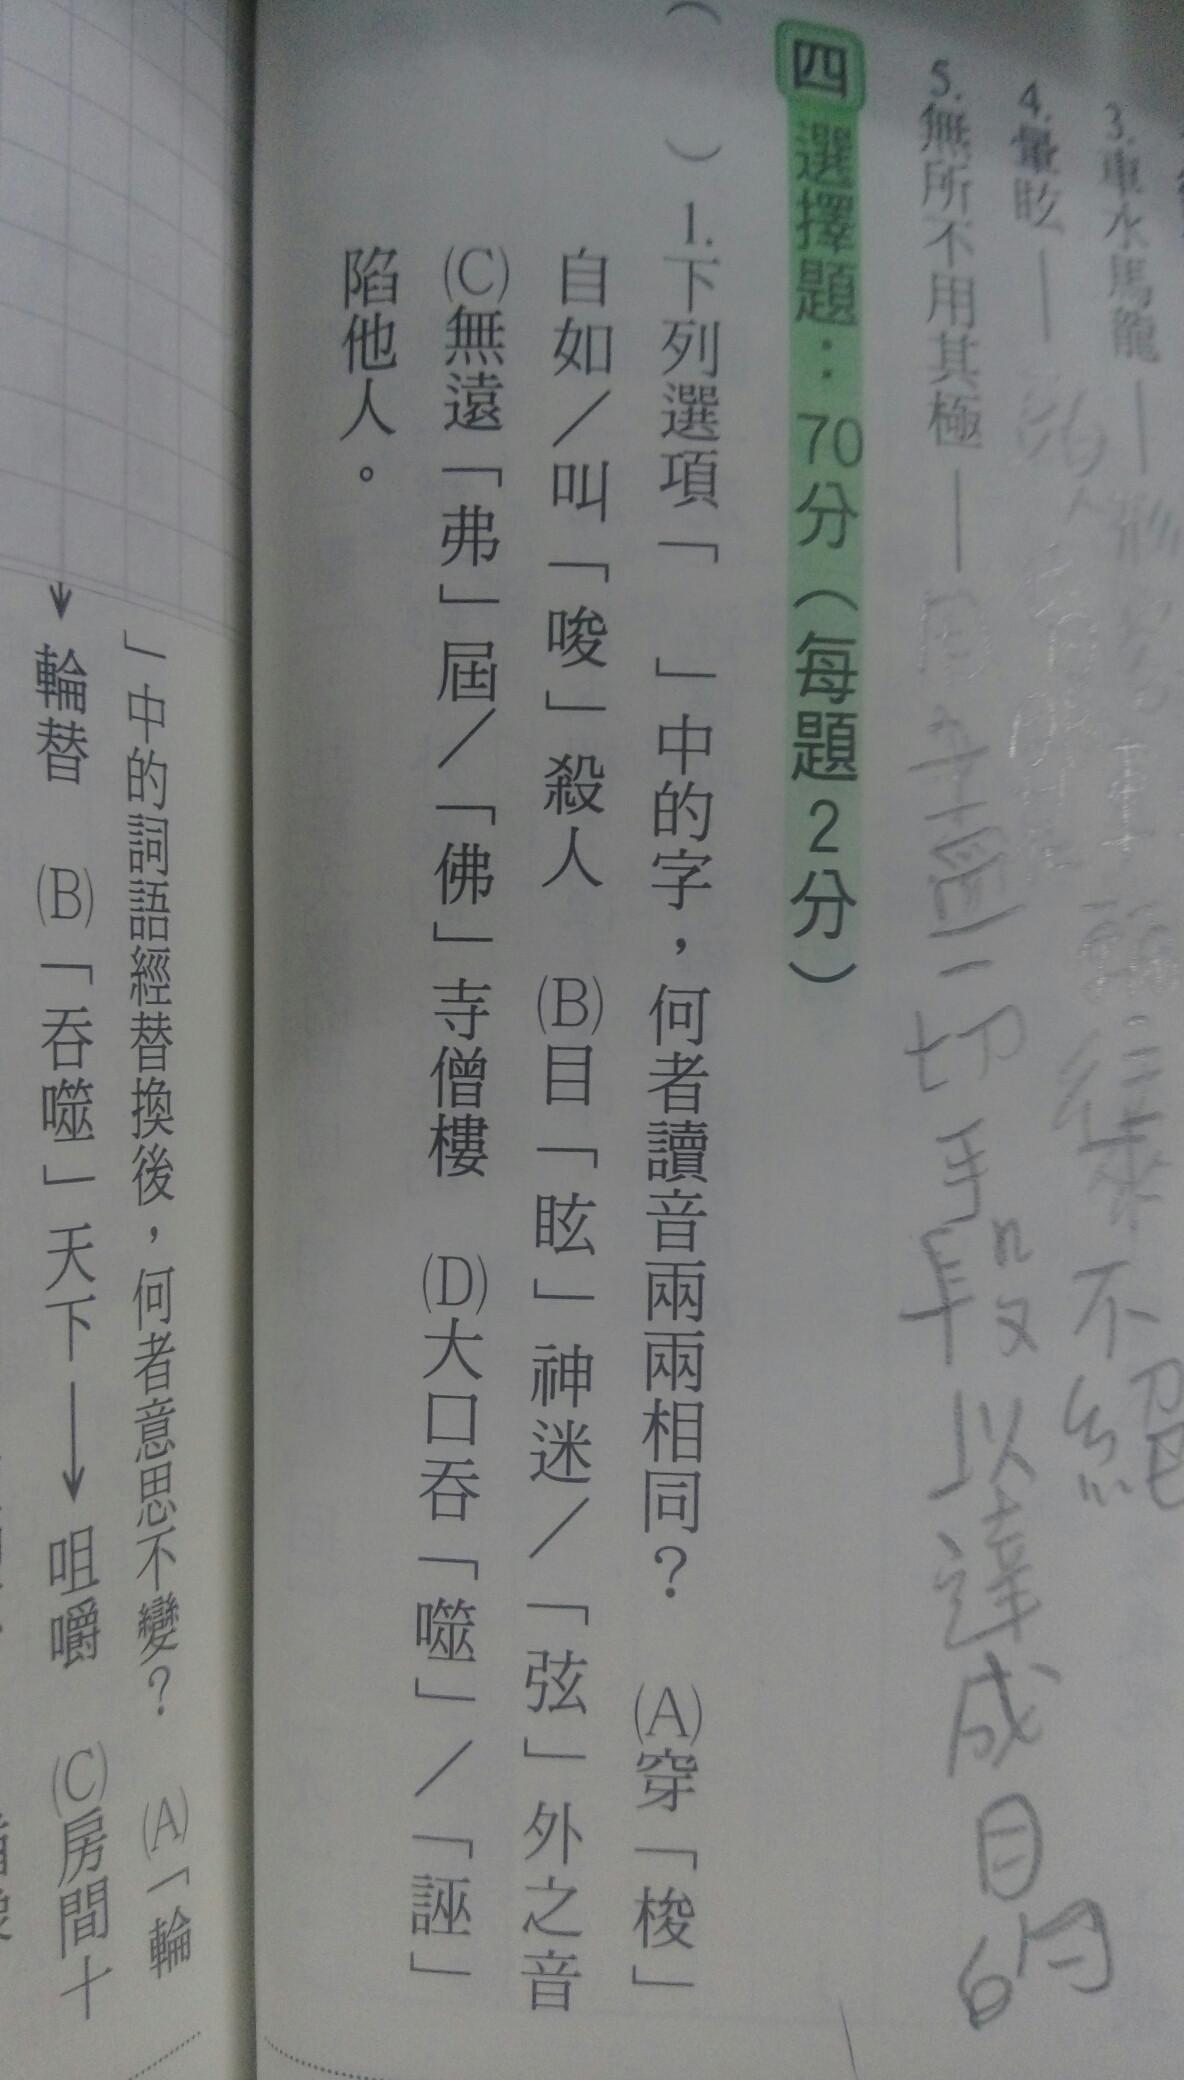 3.車水馬龍—形容車輛往來不絕
4.暈眩—
5.無所不用其極—用盡一切手段以達成目的
四 選擇題：70分（每題2分）
（　）1.下列選項「　」中的字，何者讀音兩兩相同？ (A)穿「梭」
自如／叫「唆」殺人 (B)目「眩」神迷／「弦」外之音
(C)無遠「弗」屆／「佛」寺僧樓 (D)大口吞「噬」／「誣」
陷他人。
」中的詞語經替換後，何者意思不變？ (A)「輪
→輪替 (B)「吞噬」天下→咀嚼 (C)房間十